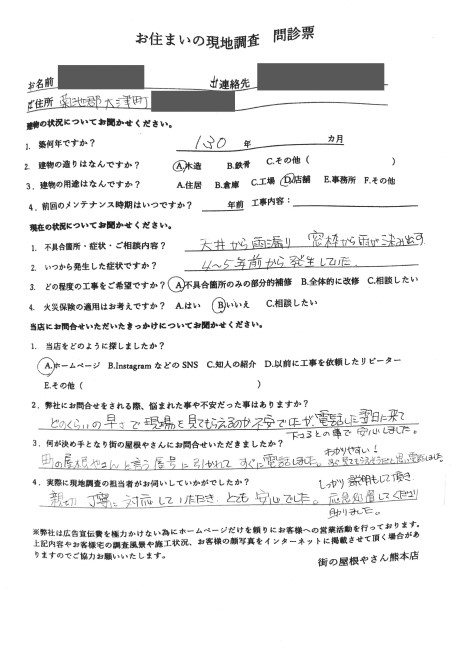 お住まいの現地調査 問診票
お名前 ご連絡先
ご住所 菊池郡大津町
建物の状況についてお聞かせください。
1. 築何年ですか? 130 年 カ月
2. 建物の造りはなんですか? A.木造 B.鉄骨 C.その他 ( )
3. 建物の用途はなんですか? A.住居 B.倉庫 C.工場 D.店舗 E.事務所 F.その他
4. 前回のメンテナンス時期はいつですか? 年前 工事内容:
現在の状況についてお聞かせください。
1. 不具合箇所・症状・ご相談内容? 天井から雨漏り 窓枠から雨が染み出す
2. いつから発生した症状ですか? 4〜5年前から発生していた。
3. どの程度の工事をご希望ですか? A.不具合箇所のみの部分的補修 B.全体的に改修 C.相談したい
4. 火災保険の適用はお考えですか? A.はい B.いいえ C.相談したい
当店にお問合せいただいたきっかけについてお聞かせください。
1. 当店をどのように探しましたか?
A.ホームページ B.Instagram などの SNS C.知人の紹介 D.以前に工事を依頼したリピーター
E.その他 ( )
2. 弊社にお問合せをされる際、悩まれた事や不安だった事はありますか?
どのくらいの早さで現場を見てもらえるか不安でしたが、電話した翌日に来て
下さるとの事で安心しました。
3. 何が決め手となり街の屋根やさんにお問合せいただきましたか?
わかりやすい!
町の屋根やさんと言う屋号に引かれてすぐに電話しました。すぐ見てもらえそうだと思い電話しました
4. 実際に現地調査の担当者がお伺いしていかがでしたか?
しっかり説明もして頂き
親切 丁寧に対応していただき、とても安心でした。応急処置してくださり
助りました。
※弊社は広告宣伝費を極力かけない為にホームページだけを頼りにお客様への営業活動を行っております。
上記内容やお客様宅の調査風景や施工状況、お客様の顔写真をインターネットに掲載させて頂く場合があ
りますのでご協力お願いいたします。
街の屋根やさん熊本店